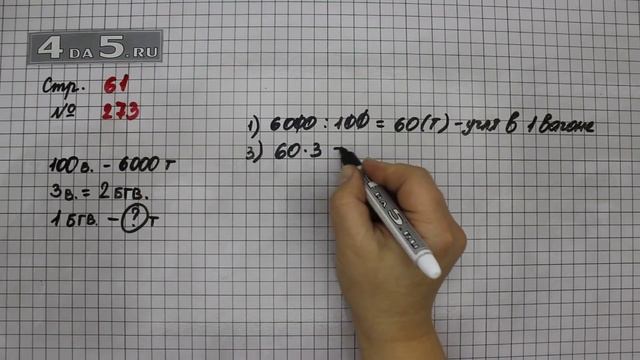 4 DA 5.RU
Стр. 61
№ 273
100 в. - 6000 т
3 в. = 2 бгв.
1 бгв. - ? т
1) 6000 : 100 = 60 (т) - угля в 1 вагоне
3) 60 · 3
4 DA 5.RU